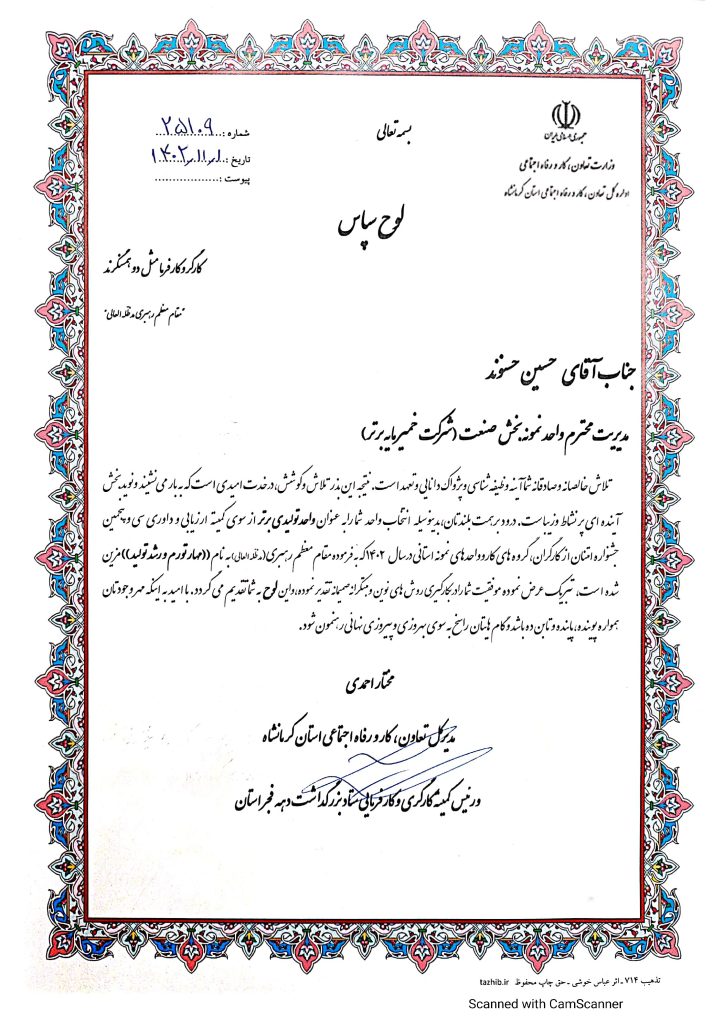 بسمه تعالی
جمهوری اسلامی ایران
وزارت تعاون، کار و رفاه اجتماعی
اداره کل تعاون، کار و رفاه اجتماعی استان کرمانشاه
شماره :..۲۵۱۰۹..
تاریخ :..۱۴۰۲٫۱۱٫۱
پیوست :...................
لوح سپاس
کارگر و کارفرما مثل دو همسنگرند
"مقام معظم رهبری مدظله العالی"
جناب آقای حسین حسنوند
مدیریت محترم واحد نمونه بخش صنعت (شرکت خمیرمایه برتر)
تلاش خالصانه و صادقانه شما آینه وظیفه شناسی و پژواک دانایی و تعهد است. نتیجه این بذر تلاش و کوشش، درخت امیدی است که به بار می نشیند و نوید بخش
آینده ای پر نشاط و زیباست. درود بر همت بلندتان، بدینوسیله انتخاب واحد شما را به عنوان واحد تولیدی برتر از سوی کمیته ارزیابی و داوری سی و پنجمین
جشنواره امتنان از کارگران، گروه های کار و واحدهای نمونه استانی در سال ۱۴۰۲ که به فرموده مقام معظم رهبری (مدظله العالی) به نام ((مهار تورم و رشد تولید)) مزین
شده است، تبریک عرض نموده موفقیت شما را در بکارگیری روش های نوین و مبتکرانه صمیمانه تقدیر نموده، و این لوح به شما تقدیم می گردد. با امید به اینکه مهر وجودتان
همواره پوینده، پاینده و تابنده باشد و کام هایتان راسخ به سوی بهروزی و پیروزی نهائی رهنمون شود.
مختار احمدی
مدیرکل تعاون، کار و رفاه اجتماعی استان کرمانشاه
و رئیس کمیته کارگری و کارفرمایی ستاد بزرگداشت دهه فجر استان
تذهیب ۷۱۴ - اثر عباس خوشی - حق چاپ محفوظ tazhib.ir
Scanned with CamScanner